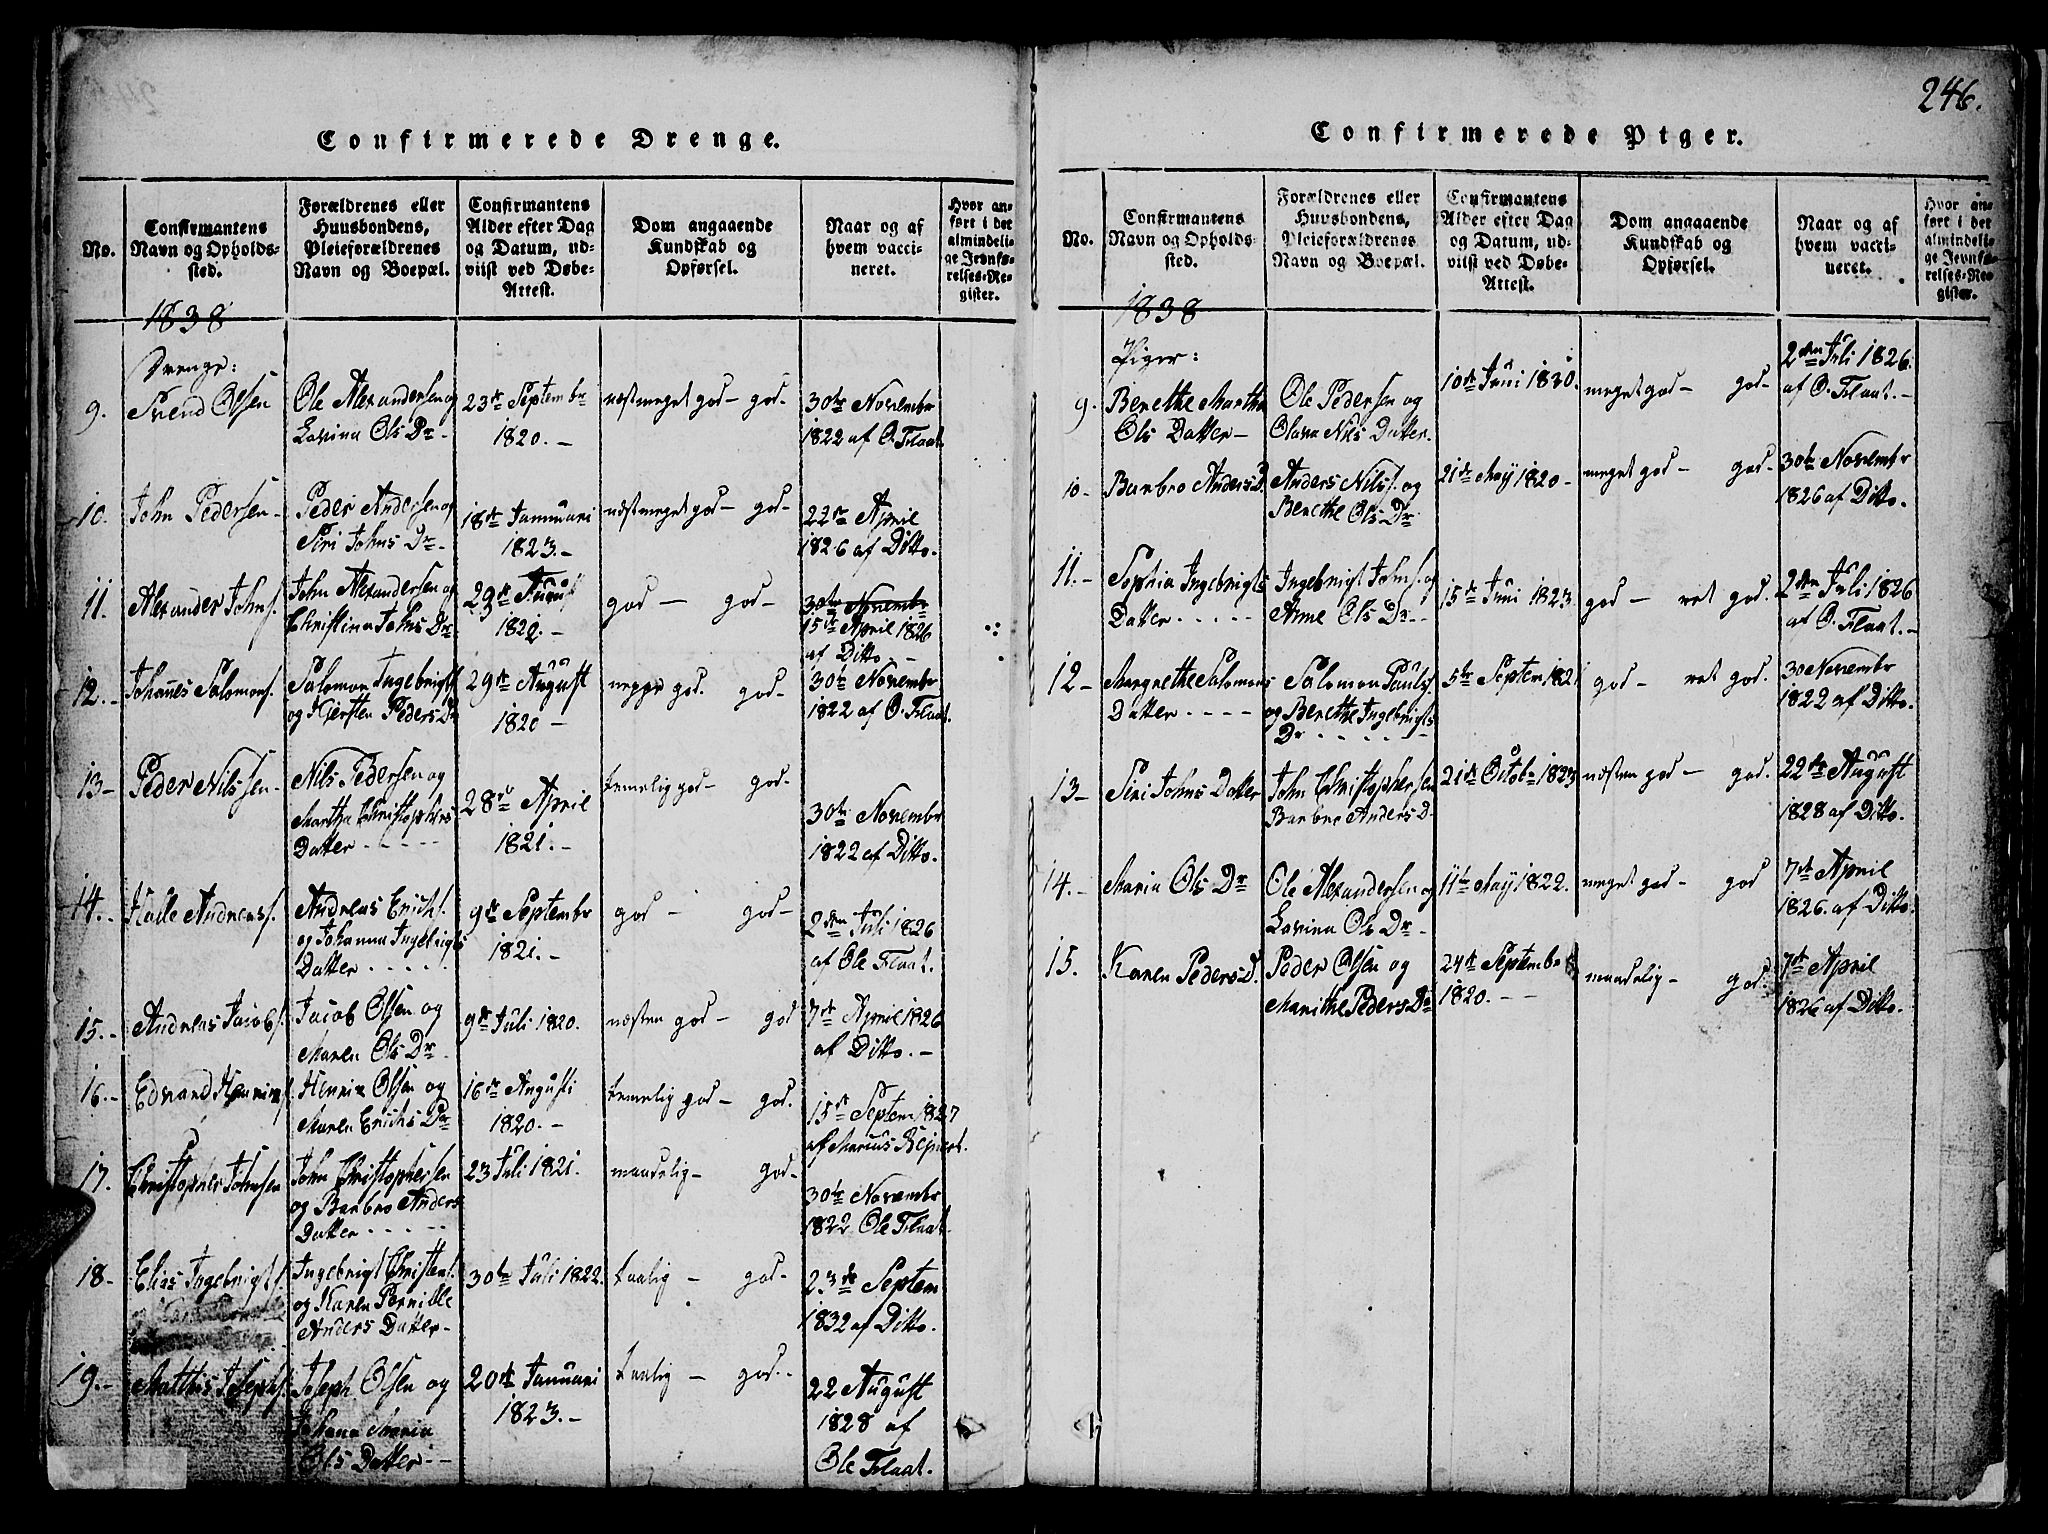 246.
Confirmerede Drenge.
No.
Confirmantens
Navn og Opholds-
sted.
Forældrenes eller
Huusbondens,
Pleieforældrenes
Navn og Boepæl.
Confirmantens
Alder efter Dag
og Datum, ud-
viist ved Døbe-
Attest.
Dom angaaende
Kundskab og
Opførsel.
Naar og af
hvem vacci-
neret.
Hvor an-
ført i det
almindeli-
ge Jevnfø-
relses-Re-
gister.
1838
Drenge:
9. Svend Olsen
Ole Alexandersen og
Lavina Ols Dr-
23de Septembr
1820.-
næst meget god- god-
30te Novembr
1822 af O. Flaat
10. John Pedersen-
Peder Andersen og
Siri Johns Dr-
18de Januari
1823.-
næst meget god- god-
22de April
1826 af Ditto.
11. Alexander Johns.
John Alexandersen og
Christina Johns Dr-
29de August
1822.-
god- god-
30te Novembr
15de April 1826
af Ditto.-
12.- Johanes Salomons.
Salomon Ingebrigts.
og Kjersten Peders Dr
29de August
1820-
neppe god. god-
30te Novembr
1822 af O. Flaat.
13- Peder Nilssen-
Nils Pedersen og
Martha Christophers
Datter-----
28de April
1821.-
temelig god- god-
30te Novembr
1822 af Ditto.
14.- Halle Andreas.
Andreas Erichs.
og Johanna Ingebrigts
Datter.....
9de Septembr
1821.-
god- god-
2den Juli 1826
af Ole Flaat.
15.- Andreas Jacobs.
Jacob Olsen og
Maren Ols Dr-
9de Juli 1820.
næsten god- god
7de April 1826
af Ditto.-
16.- Edvard Henrics.
Henric Olsen og
Maren Erichs Dr
16de Augusti
1820.-
temelig god- god.
15de Septem 1827
af Marcus
17. Christopher Johnsen
John Christophersen
og Barbro Anders
Datter-----
23 Juli 1821.
maadelig- god-
30te Novembr
1822 Ole Flaat.
18- Elias Ingebrigts.
Ingebrigt Christens.
og Karen Pernille
Anders Datter-
30te Juli 1822.
taalig- god-
23de Septem
1832 af Ditto.
19.- Matthis Josephs.
Joseph Olsen og
Johana Maria
Ols Datter--
20de Januari
1823.-
taalig- god-
22 August
1828 af
Ole Flaat.
Confirmerede Piger.
No.
Confirmantens
Navn og Opholds-
sted.
Forældrenes eller
Huusbondens,
Pleieforældrenes
Navn og Boepæl.
Confirmantens
Alder efter Dag
og Datum, ud-
viist ved Døbe-
Attest.
Dom angaaende
Kundskab og
Opførsel.
Naar og af
hvem vacci-
neret.
Hvor an-
ført i det
almindeli-
ge Jevnfø-
relses-Re-
gister.
1838
Piger:
9. Berethe Martha
Ols Datter-
Ole Pedersen og
Olava Nils Datter.
10de Juni 1820.
meget god- god-
2den Juli 1826.
af O. Flaat.-
10- Barbro Anders D.
Anders Nilss. og
Berethe Ols Dr
21de May 1820-
meget god- god-
30te Novembr
1826 af Ditto.
11.- Sophia Ingebrigts
Datter.....
Ingebrigt Johns. og
Anne Ols Dr--
15de Juni 1823.
god- ret god.
2den Juli 1826
af O. Flaat.-
12- Margrethe Salomons
Datter----
Salomon Pauls.
og Berethe Ingebrigts
Dr------
5te Septem 1821
god- ret god.
30 Novembr
1822 af Ditto.
13- Siri Johns Datter
John Christophersen
Barbro Anders D.
21de Octobr 1823
næsten god- god.
22de August
1828 af Ditto.
14.- Maria Ols Dr
Ole Alexandersen og
Lavina Ols Dr-
11te May 1822.
meget god- god
7de April
1826. af Ditto.
15. Karen Peders D.
Peder Olsen og
Marithe Peders Dr
24de Septembr
1820.--
maadelig- god.
7de April
1826 af Ditto.